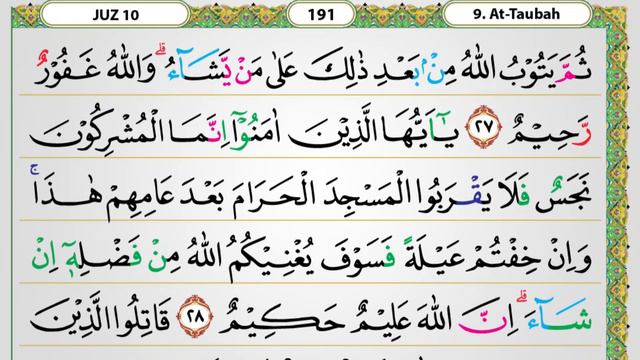 JUZ 10 191 9. At-Taubah
ثُمَّ يَتُوْبُ اللّٰهُ مِنْۢ بَعْدِ ذٰلِكَ عَلٰى مَنْ يَّشَاۤءُۗ وَاللّٰهُ غَفُوْرٌ
رَّحِيْمٌ ٢٧ يٰٓاَيُّهَا الَّذِيْنَ اٰمَنُوْٓا اِنَّمَا الْمُشْرِكُوْنَ
نَجَسٌ فَلَا يَقْرَبُوا الْمَسْجِدَ الْحَرَامَ بَعْدَ عَامِهِمْ هٰذَاۚ
وَاِنْ خِفْتُمْ عَيْلَةً فَسَوْفَ يُغْنِيْكُمُ اللّٰهُ مِنْ فَضْلِهٖٓ اِنْ
شَاۤءَۗ اِنَّ اللّٰهَ عَلِيْمٌ حَكِيْمٌ ٢٨ قَاتِلُوا الَّذِيْنَ